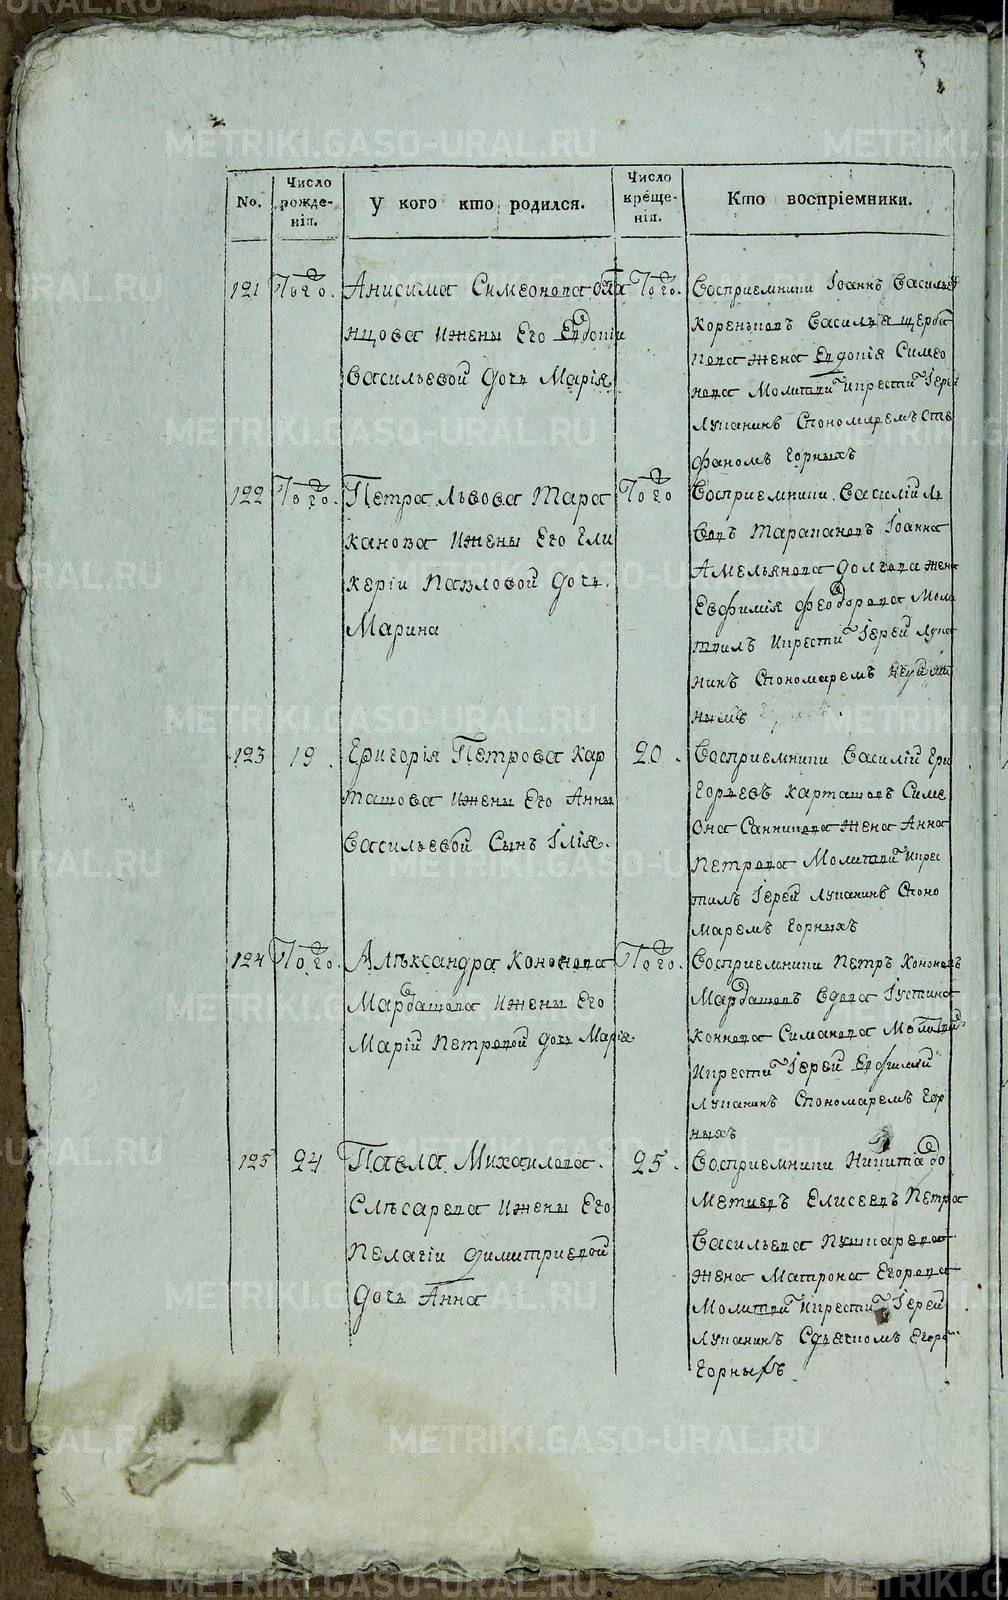 No.
Число рожде-нія.
У кого кто родился.
Число креще-нія.
Кто воспріемники.
121
Того.
Анисима Симеонова
нцова ижены Его Евдопіи
Васильевой дочь Марія
Того.
Восприемники Іоаннъ Василье
Кореньковъ Василья щерба
кова жена Евдокія Симео
нова Молитви икрести Іерей
Лупанинъ Спономаремъ Сте
фаномъ Горныхъ
122
Того.
Петра Львова Тара
канова ижены Его Гли
керіи Павловой дочь.
Марина
Того
Восприемники Василій Ль
вовъ Таракановъ Іоанна
Амельянова Долгова жена
Евфимія Феодорова Моли
твилъ икрести Іерей Лупа
нинъ Спономаремъ
нымъ
123
19
Григорія Петрова Кар
ташова ижены Его Анны
Васильевой Сынъ Ілія.
20
Восприемники Василій Гри
горьевъ Карташовъ Симе
она Санникова жена Анна
Петрова Молитви икрес
тилъ Іерей Лупанинъ Споно
маремъ Горныхъ
124
Того.
Алѣксандра Кононова
Мардашова ижены Его
Марій Петровой дочь Марія
Того.
Восприемники Петръ Кононовъ
Мардашовъ вдова Іустина
Симанова
икрести Іерей Евфимій
Лупанинъ Спономаремъ Гор
ныхъ
125
24
Павла Михаилова.
Слѣсарева ижены Его
Пелагіи Димитриевой
дочь Анна
25
Восприемники Никита До
метиевъ Елисеевъ Петра
Васильева Пушкарева
жена Матрона Егорова
Молитви икрести Іерей
Лупанинъ Сдьячкомъ Егоро
Горныхъ